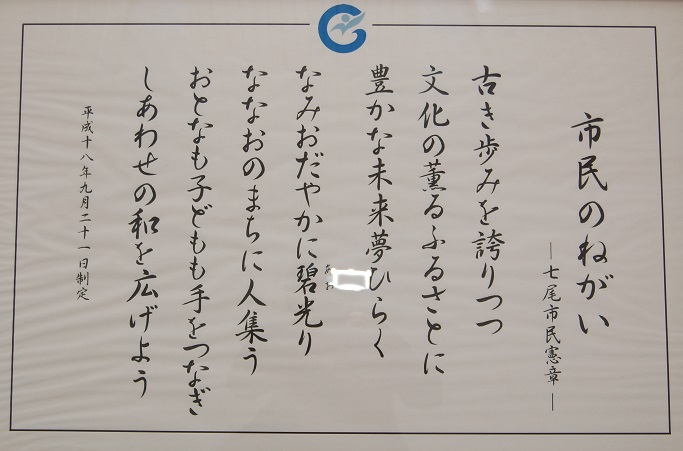 市民のねがい
―七尾市民憲章―
古き歩みを誇りつつ
文化の薫るふるさとに
豊かな未来夢ひらく
なみおだやかに碧光り
あお
ななおのまちに人集う
おとなも子どもも手をつなぎ
しあわせの和を広げよう
平成十八年九月二十一日制定